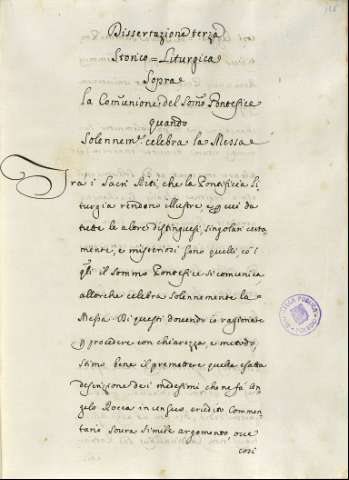 Dissertazione terza
Storico=Liturgica
Sopra
la Comunione del Somo Pontefice
quando
Solennem.e celebra la Messa
Tra i Sacri Riti, che la Pontificia Li
turgia rendono illustre, e p cui da
tutte le altre distinguesi, singolari certa
mente, e misteriosi sono quelli, co i
qli il Sommo Pontefice si comunica,
allorche celebra solennemente la
Messa. Di questi dovendo io ragionare
p procedere con chiarezza, e metodo,
stimo bene il premettere quella esatta
descrizione dei medesimi che ne fà An
gelo Rocca in un suo erudito Commen
tario soura simile argomento, ove
cosi